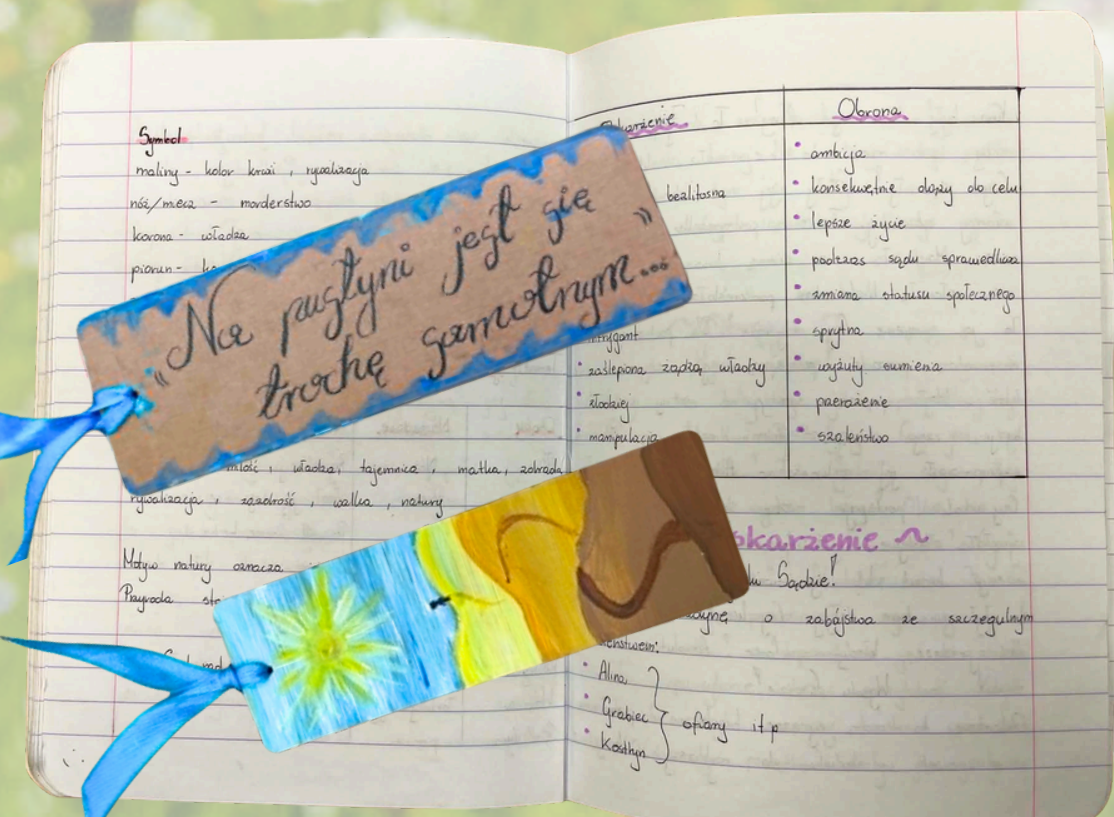 Symbol
maliny - kolor krwi , rywalizacja
nóż/miecz - morderstwo
korona - władza
piorun -
„Na pustyni jest się
trochę samotnym..."
miłość , władza, tajemnica , matka, zdrada
rywalizacja , zazdrość , walka , natury
Motyw natury oznacza
Przyroda
Obrona
bezlitosna
zaślepiona żądzą władzy
złodziej
manipulacja
• ambicja
• konsekwętnie dąży do celu
• lepsze życie
• podczas sądu sprawedliwa
• zmiana statusu społecznego
• sprytna
• wyżuty sumienia
• przerażenie
• szaleństwo
skarżenie ~
Sądzie!
o zabójstwa ze szczegulnym
• Alina
• Grabiec
• Kostryn
ofiary itp